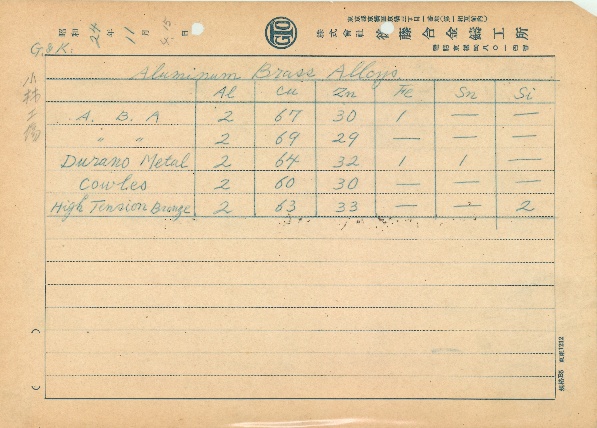 昭和 24 年 11 月 日
9.15
GIO
株式會社 後藤合金鑄工所
G.&K.
小林工場
Aluminum Brass Alloys
Al Cu Zn Fe Sn Si
A. B. A 2 67 30 1 — —
" " 2 69 29 — — —
Durano Metal 2 64 32 1 1 —
Cowles 2 60 30 — — —
High Tension Bronze 2 63 33 — — 2